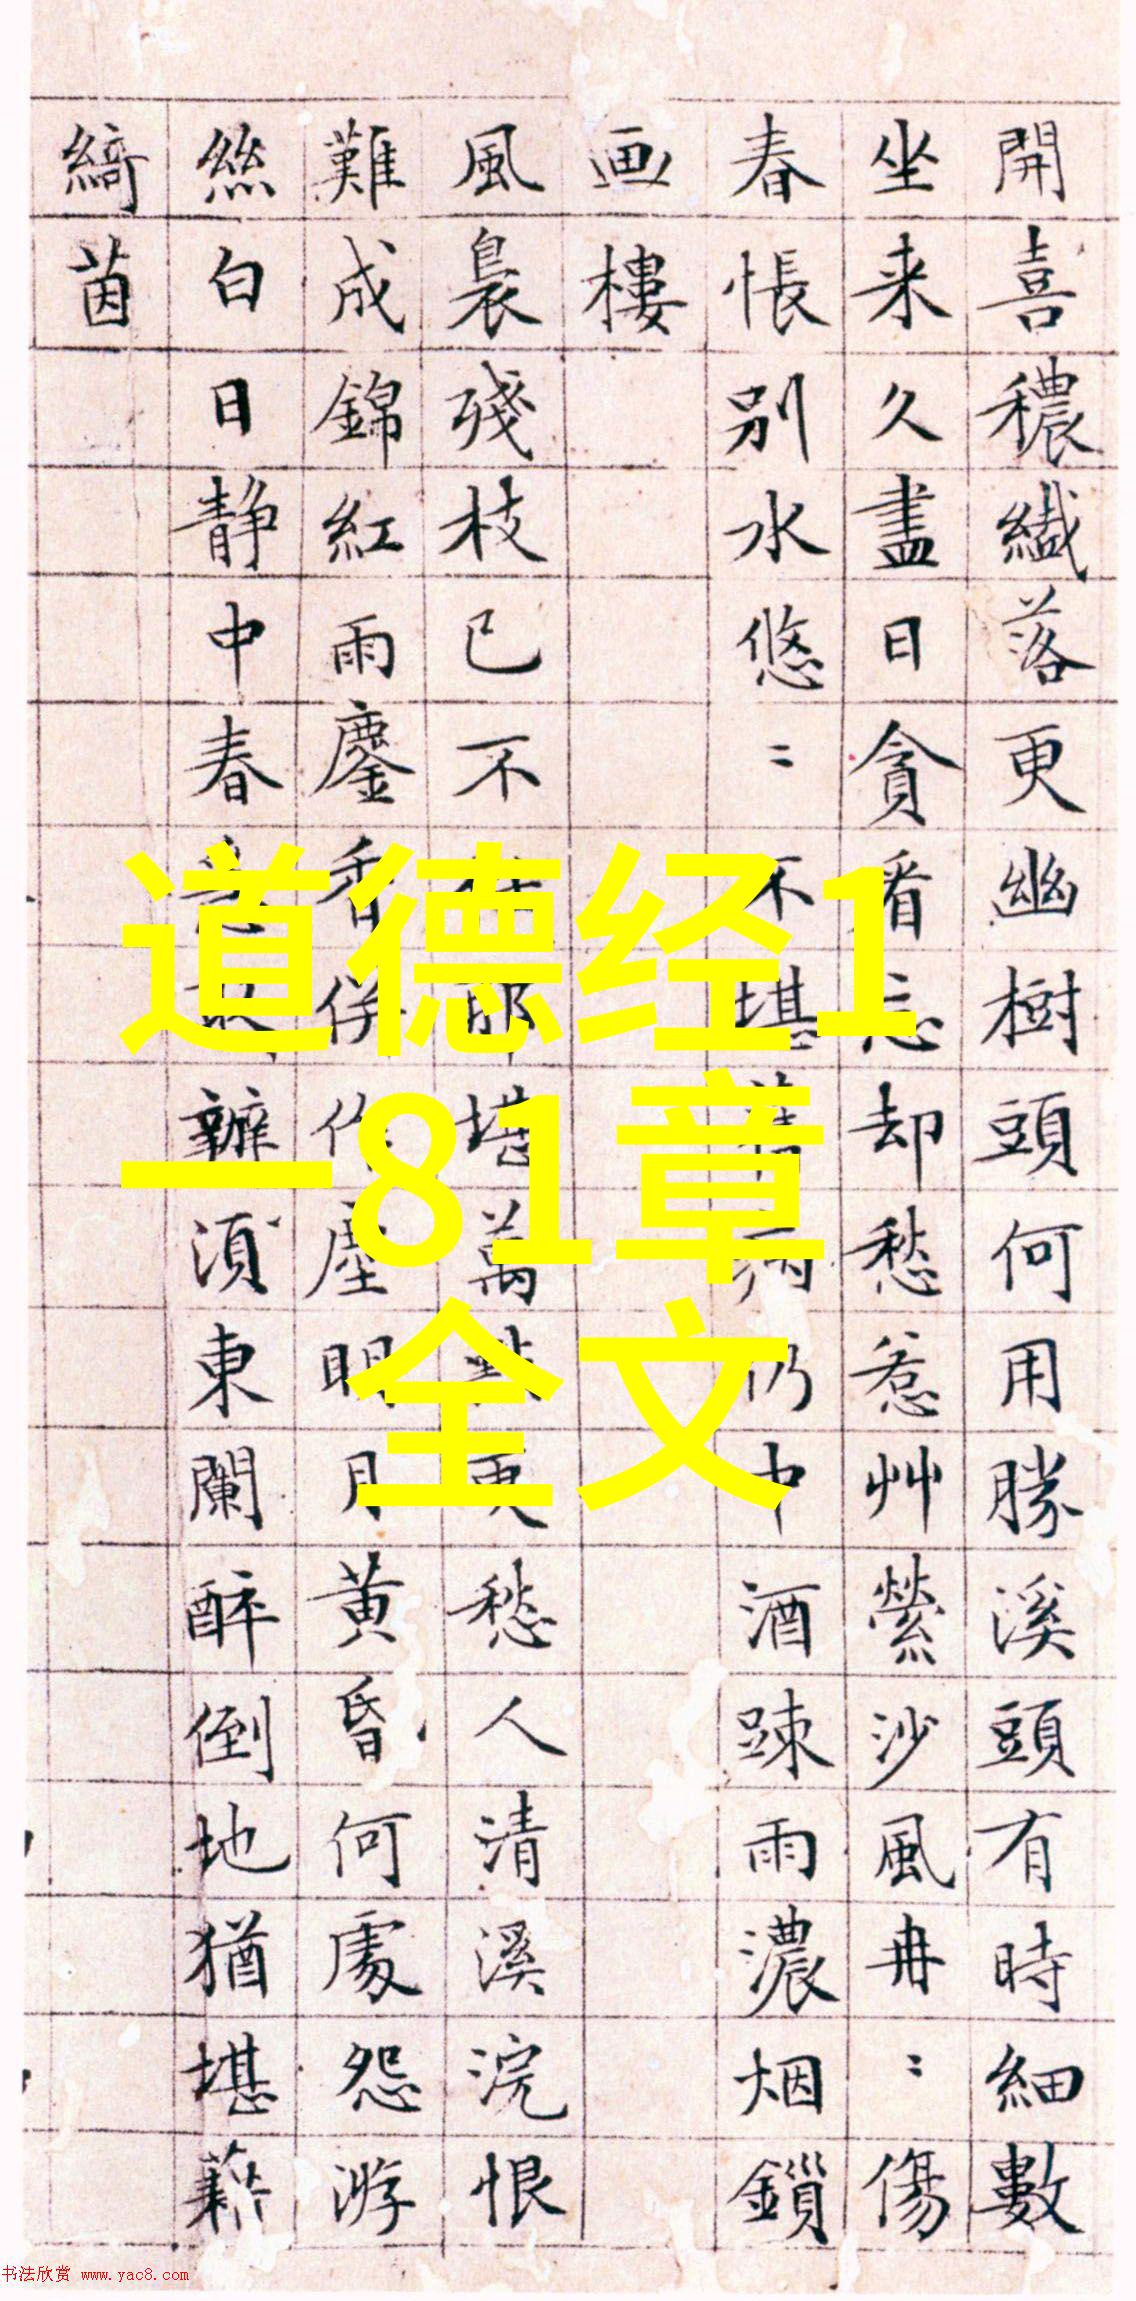 開喜穠纎落更幽樹頭何用勝溪頭有時細數
坐来久盡日貪看忘却愁惹艸縈沙風冉〻傷
春悵別水悠〻不堪病仍中酒踈雨濃烟鎖
画樓
風裊殘枝已不那堪萬點更愁人清溪浣恨
難成錦紅雨鏖香併作塵明月黄昏何處怨游
絲白日静中春辦湏東闌醉倒地猶堪藉
綺茵
道德经1
一81章
全文
书法欣赏 www.yac8.com